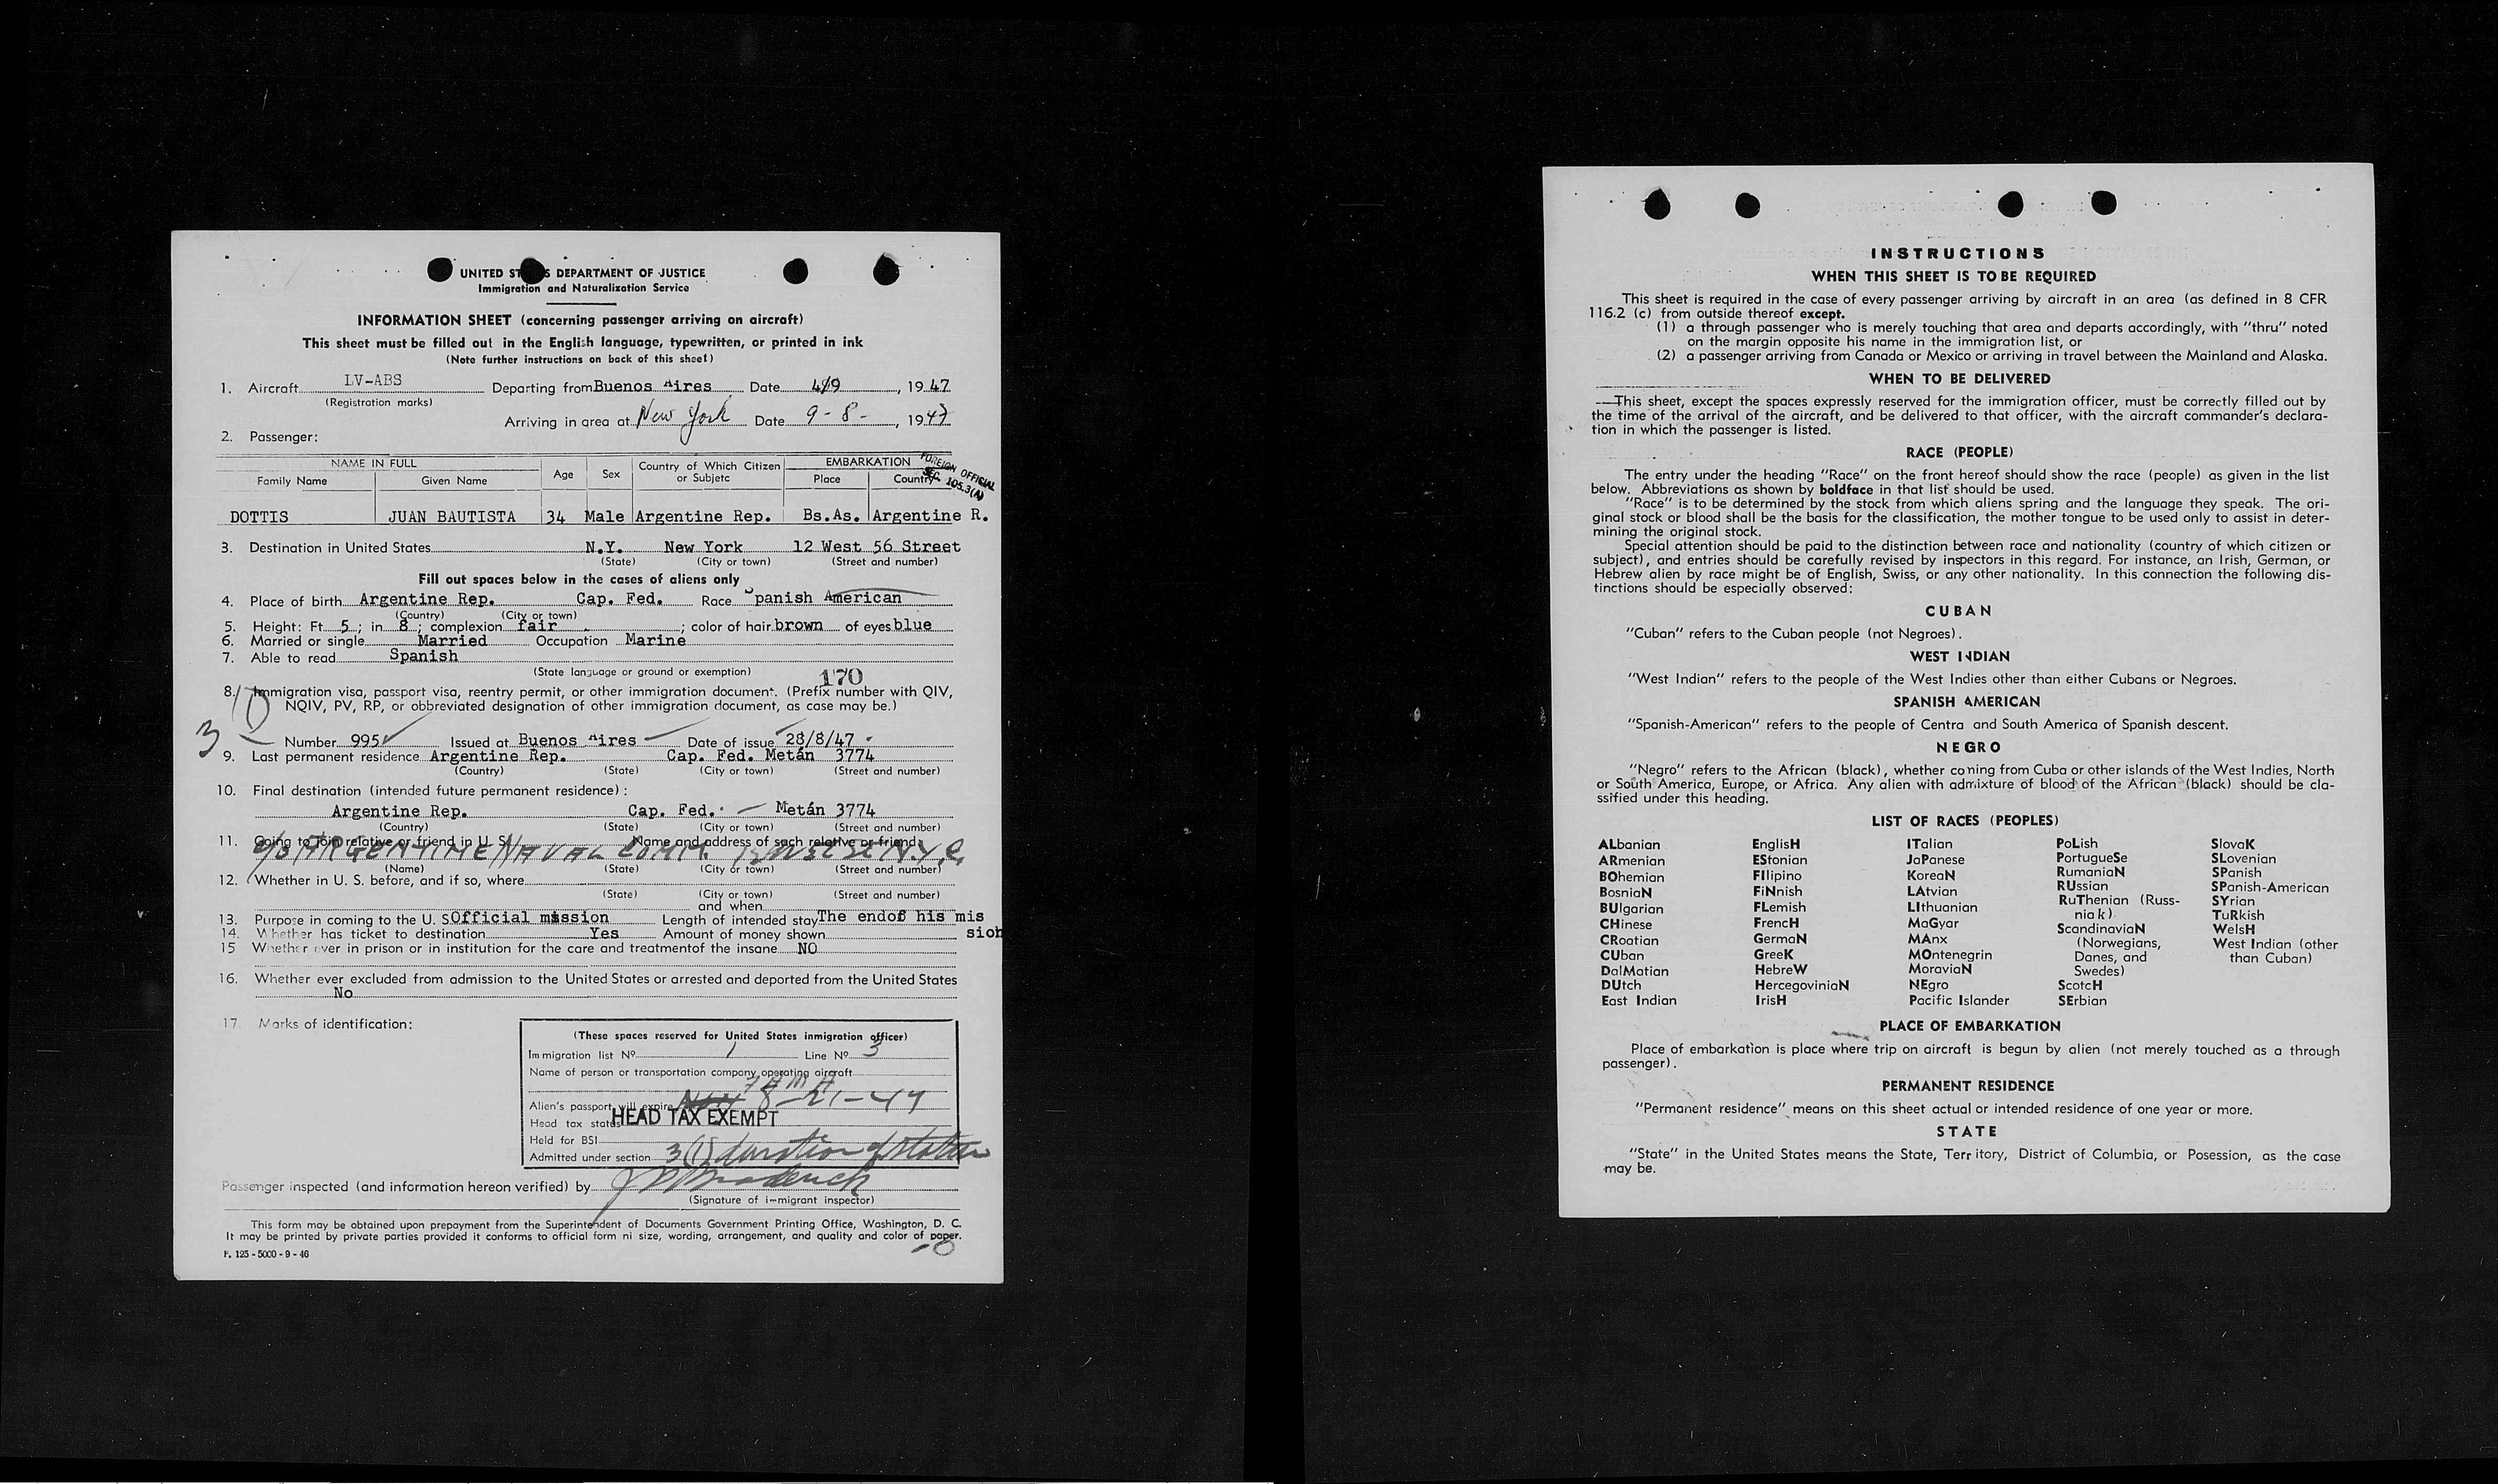 UNITED STATES DEPARTMENT OF JUSTICE
Immigration and Naturalization Service
INFORMATION SHEET (concerning passenger arriving on aircraft)
This sheet must be filled out in the English language, typewritten, or printed in ink
(Note further instructions on back of this sheet)
1. Aircraft LV-ABS Departing from Buenos Aires Date 4/9, 1947
(Registration marks)
Arriving in area at New York Date 9-8-, 1947
2. Passenger:
NAME IN FULL Age Sex Country of Which Citizen or Subjetc EMBARKATION
Family Name Given Name Place Country
FOREIGN OFFICIAL
SEC. 105.3(A)
DOTTIS JUAN BAUTISTA 34 Male Argentine Rep. Bs.As. Argentine R.
3. Destination in United States N.Y. New York 12 West 56 Street
(State) (City or town) (Street and number)
Fill out spaces below in the cases of aliens only
4. Place of birth Argentine Rep. Cap. Fed. Race Spanish American
(Country) (City or town)
5. Height: Ft. 5; in 8; complexion fair; color of hair brown of eyes blue
6. Married or single Married Occupation Marine
7. Able to read Spanish
(State language or ground or exemption)
170
8. Immigration visa, passport visa, reentry permit, or other immigration document. (Prefix number with QIV,
NQIV, PV, RP, or obbreviated designation of other immigration document, as case may be.)
3
Number 995 Issued at Buenos Aires Date of issue 28/8/47
9. Last permanent residence Argentine Rep. Cap. Fed. Metán 3774
(Country) (State) (City or town) (Street and number)
10. Final destination (intended future permanent residece):
Argentine Rep. Cap. Fed. Metán 3774
(Country) (State) (City or town) (Street and number)
11. Going to join relative or friend in U. S. Name and address of sach relative or friend:
c/o ARGENTINE NAVAL COMM. N.Y.C.
(Name) (State) (City or town) (Street and number)
12. Whether in U. S. before, and if so, where
(State) (City or town) (Street and number)
and when
13. Purpose in coming to the U. S. Official mission Length of intended stay The endof his mis
sion
14. Whether has ticket to destination Yes Amount of money shown
15 Whether ever in prison or in institution for the care and treatmentof the insane NO
16. Whether ever excluded from admission to the United States or arrested and deported from the United States
No
17. Marks of identification:
(These spaces reserved for United States inmigration officer)
Immigration list Nº 1 Line Nº 3
Name of person or transportation company operating aircraft
FAMA
Alien's passport will expire 8-21-47
Head tax status HEAD TAX EXEMPT
Held for BSI
Admitted under section 3(1) duration of status
Passenger inspected (and information hereon verified) by
(Signature of immigrant inspector)
This form may be obtained upon prepayment from the Superintendent of Documents Government Printing Office, Washington, D. C.
It may be printed by private parties provided it conforms to official form ni size, wording, arrangement, and quality and color of paper.
F. 125 - 5000 - 9 - 46
INSTRUCTIONS
WHEN THIS SHEET IS TO BE REQUIRED
This sheet is required in the case of every passenger arriving by aircraft in an area (as defined in 8 CFR
116.2 (c) from outside thereof except.
(1) a through passenger who is merely touching that area and departs accordingly, with "thru" noted
on the margin opposite his name in the immigration list, or
(2) a passenger arriving from Canada or Mexico or arriving in travel between the Mainland and Alaska.
WHEN TO BE DELIVERED
This sheet, except the spaces expressly reserved for the immigration officer, must be correctly filled out by
the time of the arrival of the aircraft, and be delivered to that officer, with the aircraft commander's declara-
tion in which the passenger is listed.
RACE (PEOPLE)
The entry under the heading "Race" on the front hereof should show the race (people) as given in the list
below. Abbreviations as shown by boldface in that list should be used.
"Race" is to be determined by the stock from which aliens spring and the language they speak. The ori-
ginal stock or blood shall be the basis for the classification, the mother tongue to be used only to assist in deter-
mining the original stock.
Special attention should be paid to the distinction between race and nationality (country of which citizen or
subject), and entries should be carefully revised by inspectors in this regard. For instance, an Irish, German, or
Hebrew alien by race might be of English, Swiss, or any other nationality. In this connection the following dis-
tinctions should be especially observed:
CUBAN
"Cuban" refers to the Cuban people (not Negroes).
WEST INDIAN
"West Indian" refers to the people of the West Indies other than either Cubans or Negroes.
SPANISH AMERICAN
"Spanish-American" refers to the people of Centra and South America of Spanish descent.
NEGRO
"Negro" refers to the African (black), whether coming from Cuba or other islands of the West Indies, North
or South America, Europe, or Africa. Any alien with admixture of blood of the African (black) should be cla-
ssified under this heading.
LIST OF RACES (PEOPLES)
ALbanian EnglisH ITalian PoLish SlovaK
ARmenian EStonian JaPanese PortugueSe SLovenian
BOhemian FIlipino KoreaN RumaniaN SPanish
BosniaN FiNnish LAtvian RUssian SPanish-American
BUlgarian FLemish LIthuanian RuThenian (Russ- SYrian
niak) TuRkish
CHinese FrencH MaGyar ScandinaviaN WelsH
CRoatian GermaN MAnx (Norwegians, West Indian (other
CUban GreeK MOntenegrin Danes, and than Cuban)
DalMatian HebreW MoraviaN Swedes)
DUtch HercegoviniaN NEgro ScotcH
East Indian IrisH Pacific Islander SErbian
PLACE OF EMBARKATION
Place of embarkation is place where trip on aircraft is begun by alien (not merely touched as a through
passenger).
PERMANENT RESIDENCE
"Permanent residence" means on this sheet actual or intended residence of one year or more.
STATE
"State" in the United States means the State, Territory, District of Columbia, or Posession, as the case
may be.